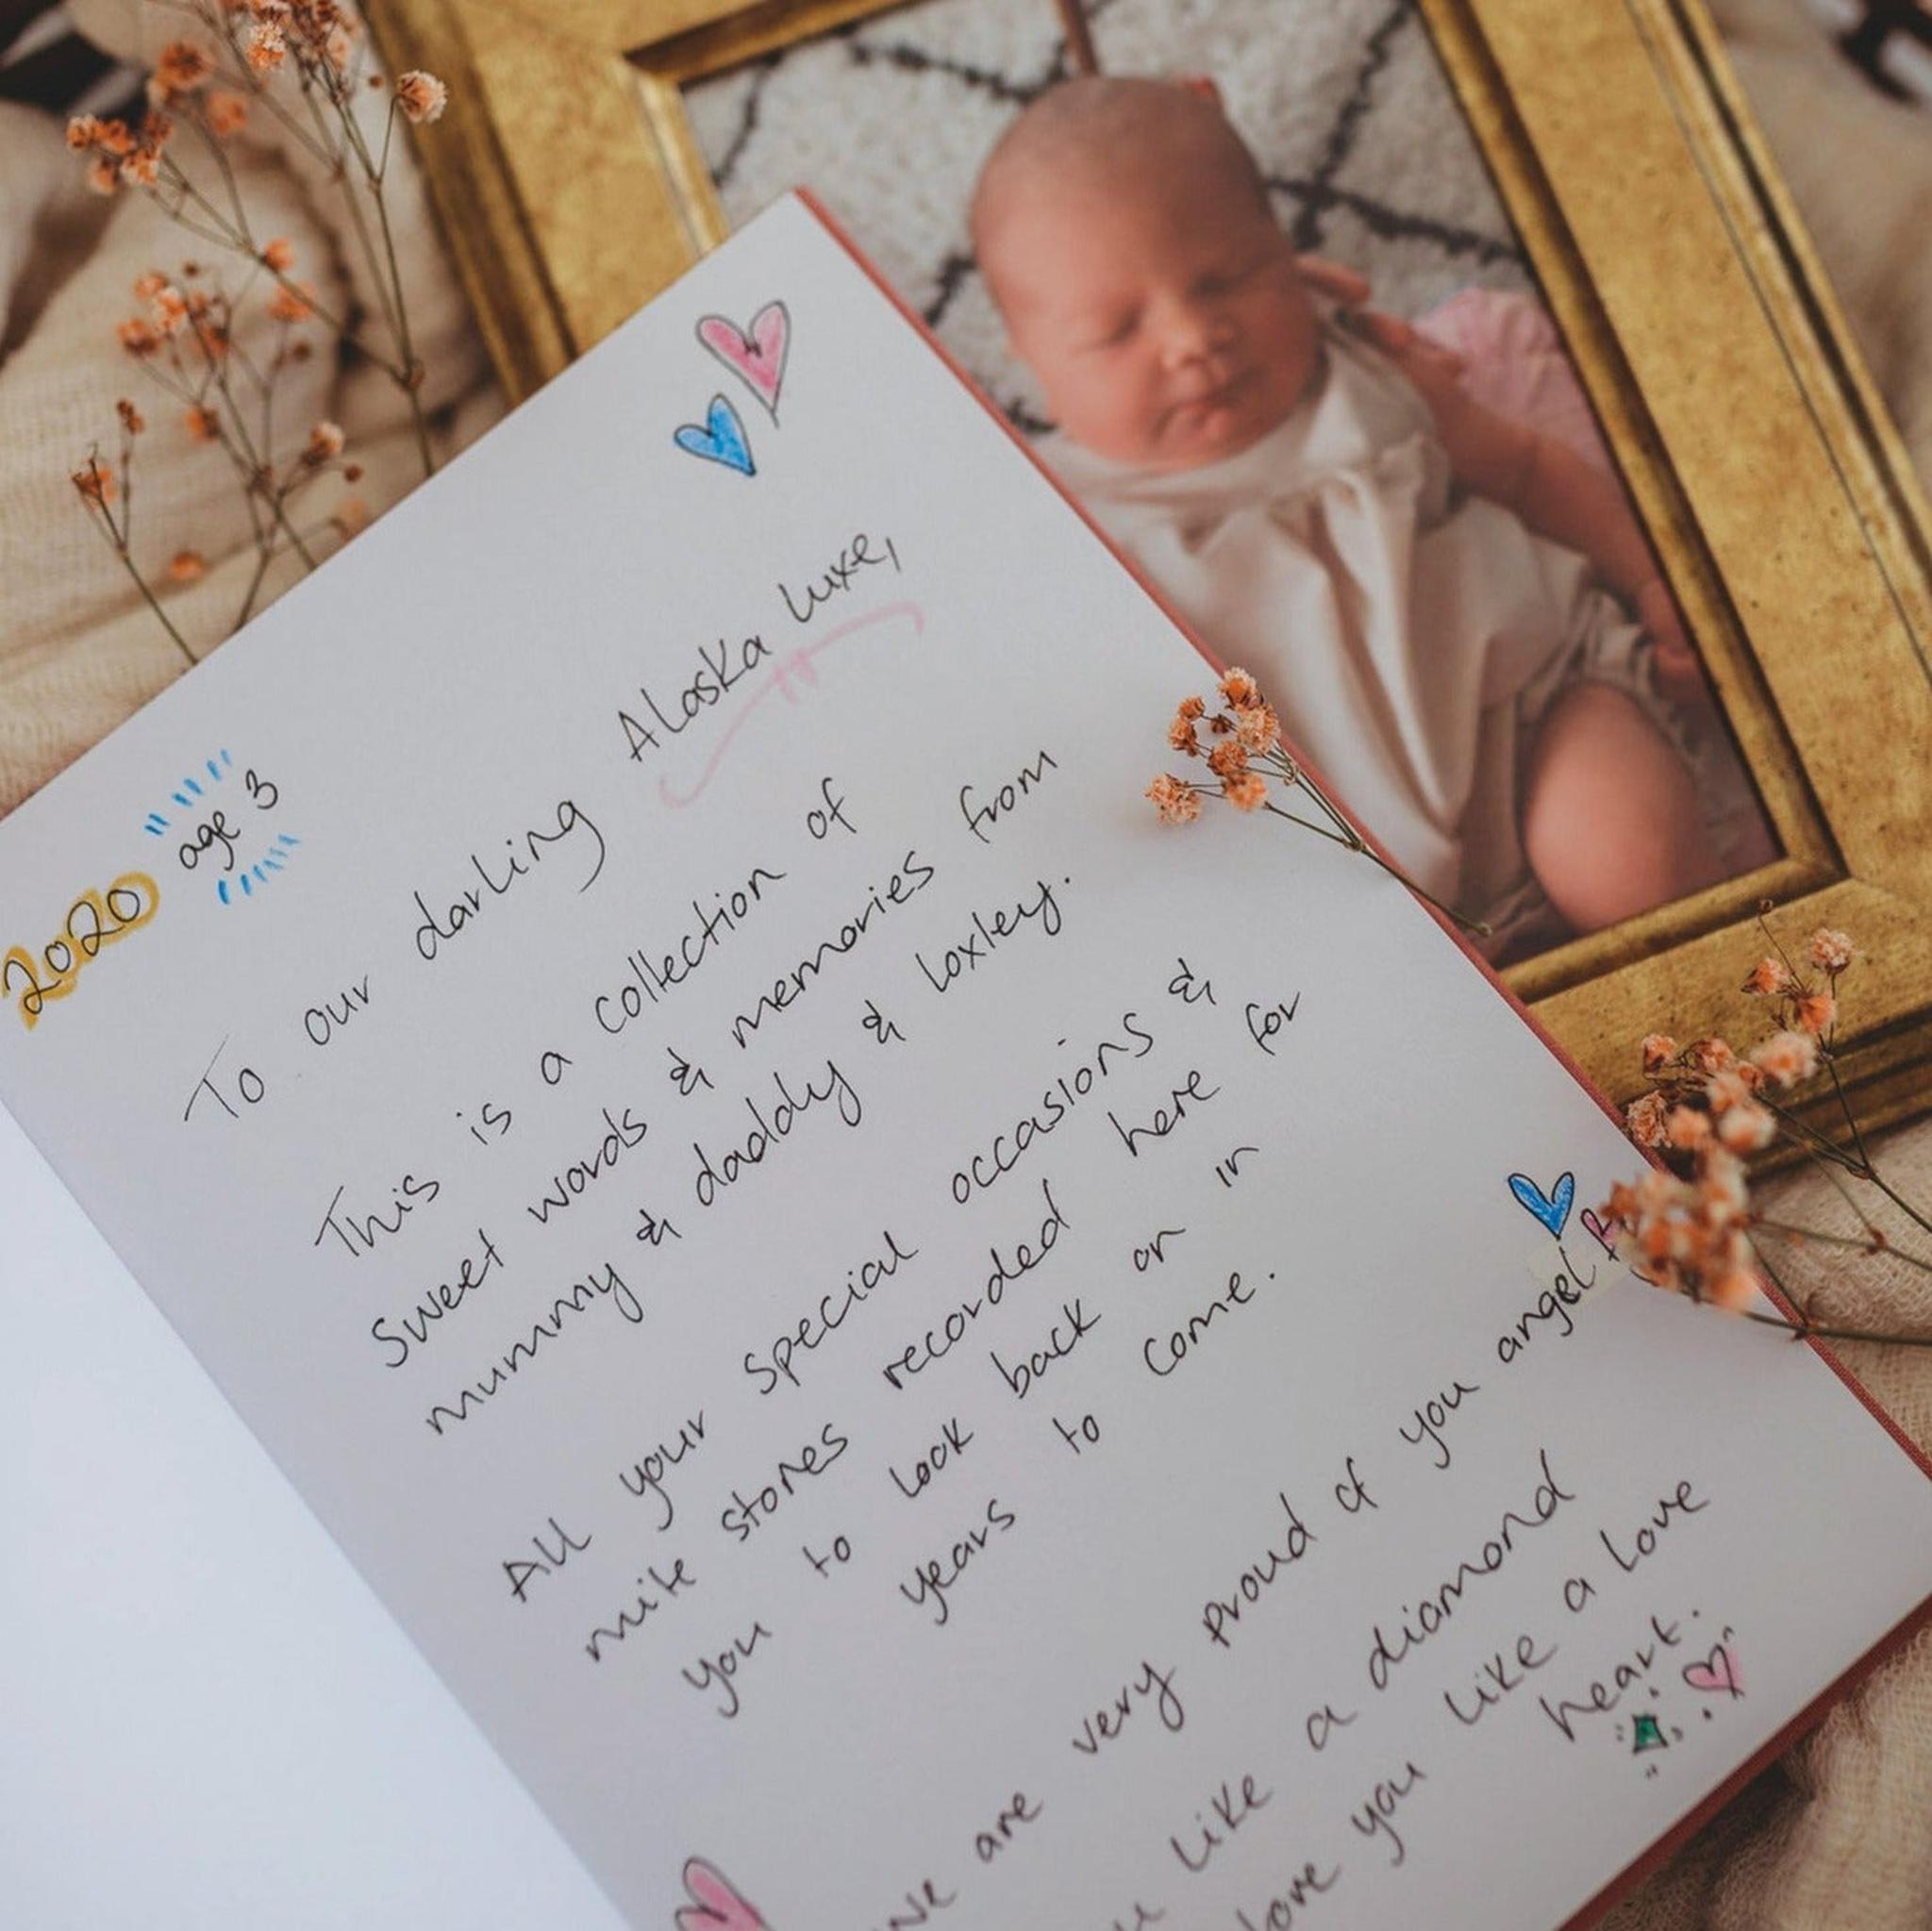 2020 age 3
To our darling Alaska Luxe,
This is a collection of
Sweet words & memories from
mummy & daddy & Loxley.
All your special occasions &
mile stones recorded here for
you to look back on in
years to come.
We are very proud of you angel
like a diamond
love you like a love
heart.